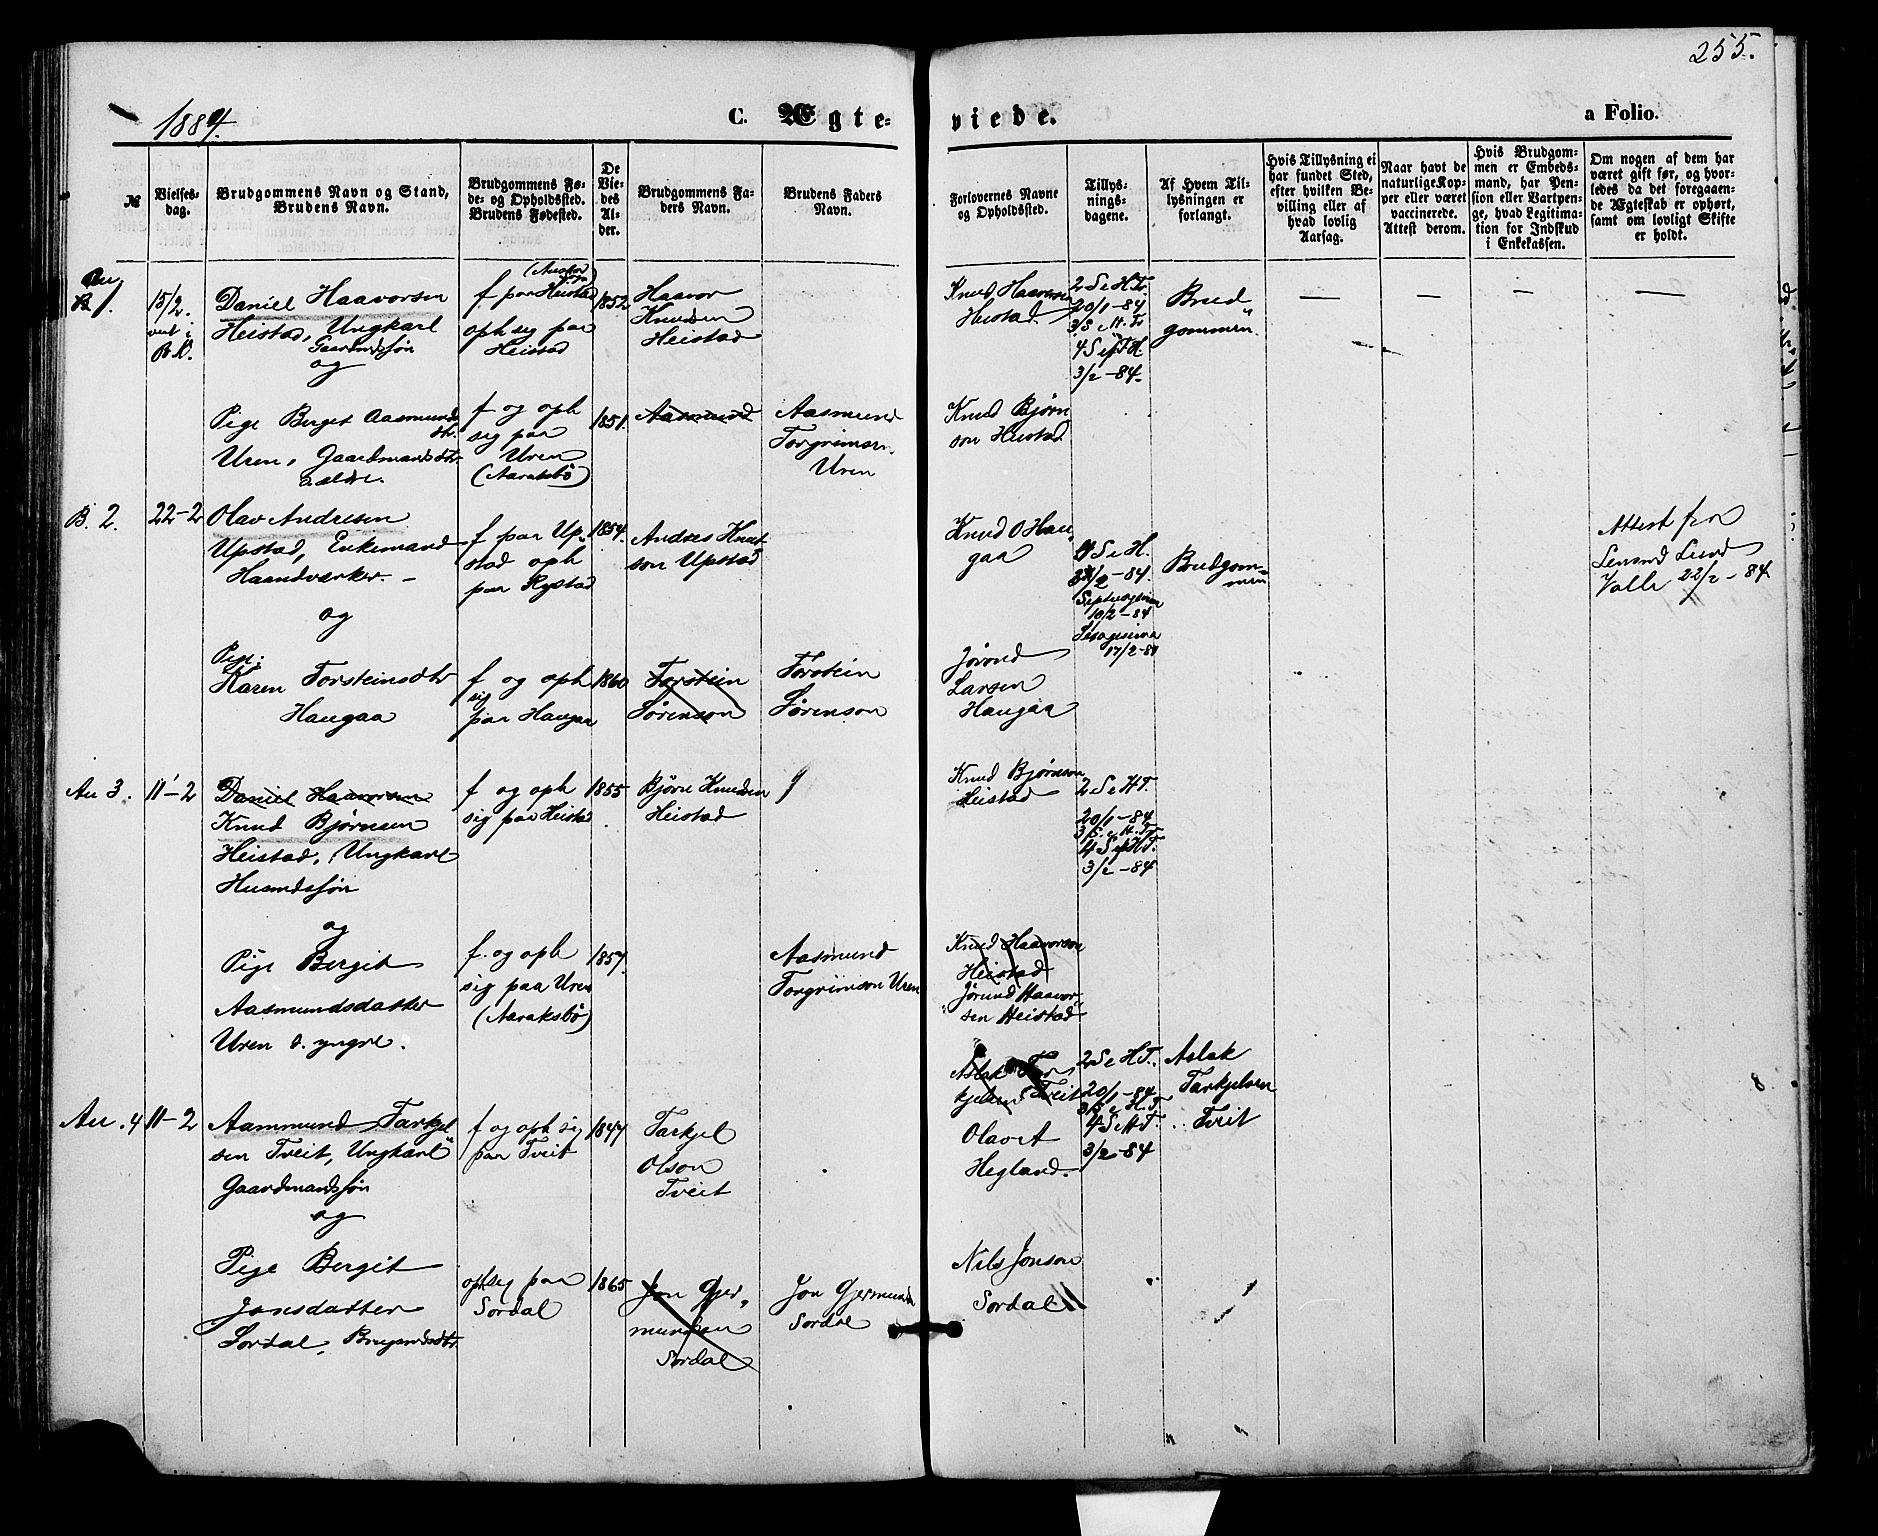 255.
1884.
C. Ægte-
viede.
a Folio.
№
Vielses-
dag.
Brudgommens Navn og Stand,
Brudens Navn.
Brudgommens Fø-
de- og Opholdssted.
Brudens Fødested.
De
Vie-
des
Al-
der.
Brudgommens Fa-
ders Navn.
Brudens Faders
Navn.
Forlovernes Navne
og Opholdssted.
Tillys-
nings-
dagene.
Af Hvem Til-
lysningen er
forlangt.
Hvis Tillysning ei
har fundet Sted,
efter hvilken Be-
villing eller af
hvad lovlig
Aarsag.
Naar havt de
naturlige Kop-
per eller været
vaccinerede.
Attest derom.
Hvis Brudgom-
men er Embeds-
mand, har Pen-
sion eller Vartpen-
ge, hvad Legitima-
tion for Indskud
i Enkekassen.
Om nogen af dem har
været gift før, og hvor-
ledes da det foregaaen-
de Ægteskab er ophørt,
samt om lovligt Skifte
er holdt.
Au
1.
15/2.
Daniel Haavorsen
Heistad, Ungkarl
Gaardmdssøn
og
f paa Heistad
oph sig paa
Heistad
1852
Haavor
Knudsen
Heistad
Knud Haavorsen
Heistad
2 S e H T.
20/1-84
3 S e H. T.
4 S e H T.
3/2-84.
Brud
gommen
— — — —
Pige Berget Aasmunds
dtr.
Uren, Gaardmandsdtr
ældre.
f og oph
sig paa
Uren
(Aaraksbö)
1851.
Aasmund
Aasmund
Torgrimsen
Uren
Knud Bjørn
son Heistad
B. 2.
22-2
Olav Andresen
Upstad, Enkemand
Haandværker. -
og
f paa Up-
stad oph
paa Rystad
1854.
Andres Knut
son Upstad
Knud O Hau
gaa
4 S e H.
3/2-84.
Septuagesima
10/2-84
Sexagesima
17/2-84
Brudgom-
men
Attest fra
Lensmd Lund
Valle 22/2-84
Pige:
Karen Torsteinsdtr
Haugaa
f og oph
sig
paa Haugaa
1860
Torstein
Sørenson
Torstein
Sørenson
Jørund
Larsen
Haugaa
Au 3.
11-2
Daniel Haavorsen
Knud Bjørnsen
Heistad, Ungkarl
Husmdssøn
og
f og oph
sig paa Heistad
1855
Bjørn Knudsen
Heistad
Knud Bjørnson
Heistad
2 S e H T.
20/1-84
3 S. e H. T.
4 S e H T.
3/2-84
Pige Bergit
Aasmundsdatter
Uren d. yngre.
f. og oph
sig paa Uren
(Aaraksbö)
1857.
Aasmund
Torgrimson Uren
Knud Haavorson
Heistad
Jørund Haavor-
sen Heistad
Au. 4
11-2
Aammund Tarkjel
sen Tveit, Ungkarl
Gaardmandssøn
og
f og oph sig
paa Tveit
1847
Tarkjel
Olson
Tveit
Aslak Tar
kjelsen Tveit
Olav A
Hegland.
2 S e H T.
20/1-84
3 S e H. T
4 S e H T.
3/2-84
Aslak
Tarkjelsen
Tveit
Pige Bergit
Jonsdatter
Sordal, Brugmdsdtr.
oph sig paa
Sordal
1865
Jon Gjer-
mundsen
Sordal
Jon Gjermunds
Sordal
Nils Jonson
Sordal